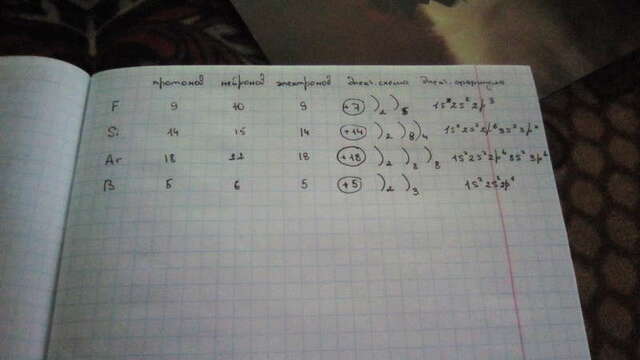 протонов нейронов электронов элект. схема элект. формула
F 9 10 9 +7 ) 2 ) 5 1s² 2s² 2p³
Si 14 15 14 +14 ) 2 ) 8 ) 4 1s² 2s² 2p⁶ 3s² 3p²
Ar 18 22 18 +18 ) 2 ) 8 ) 8 1s² 2s² 2p⁶ 3s² 3p⁶
B 5 6 5 +5 ) 2 ) 3 1s² 2s² 2p¹